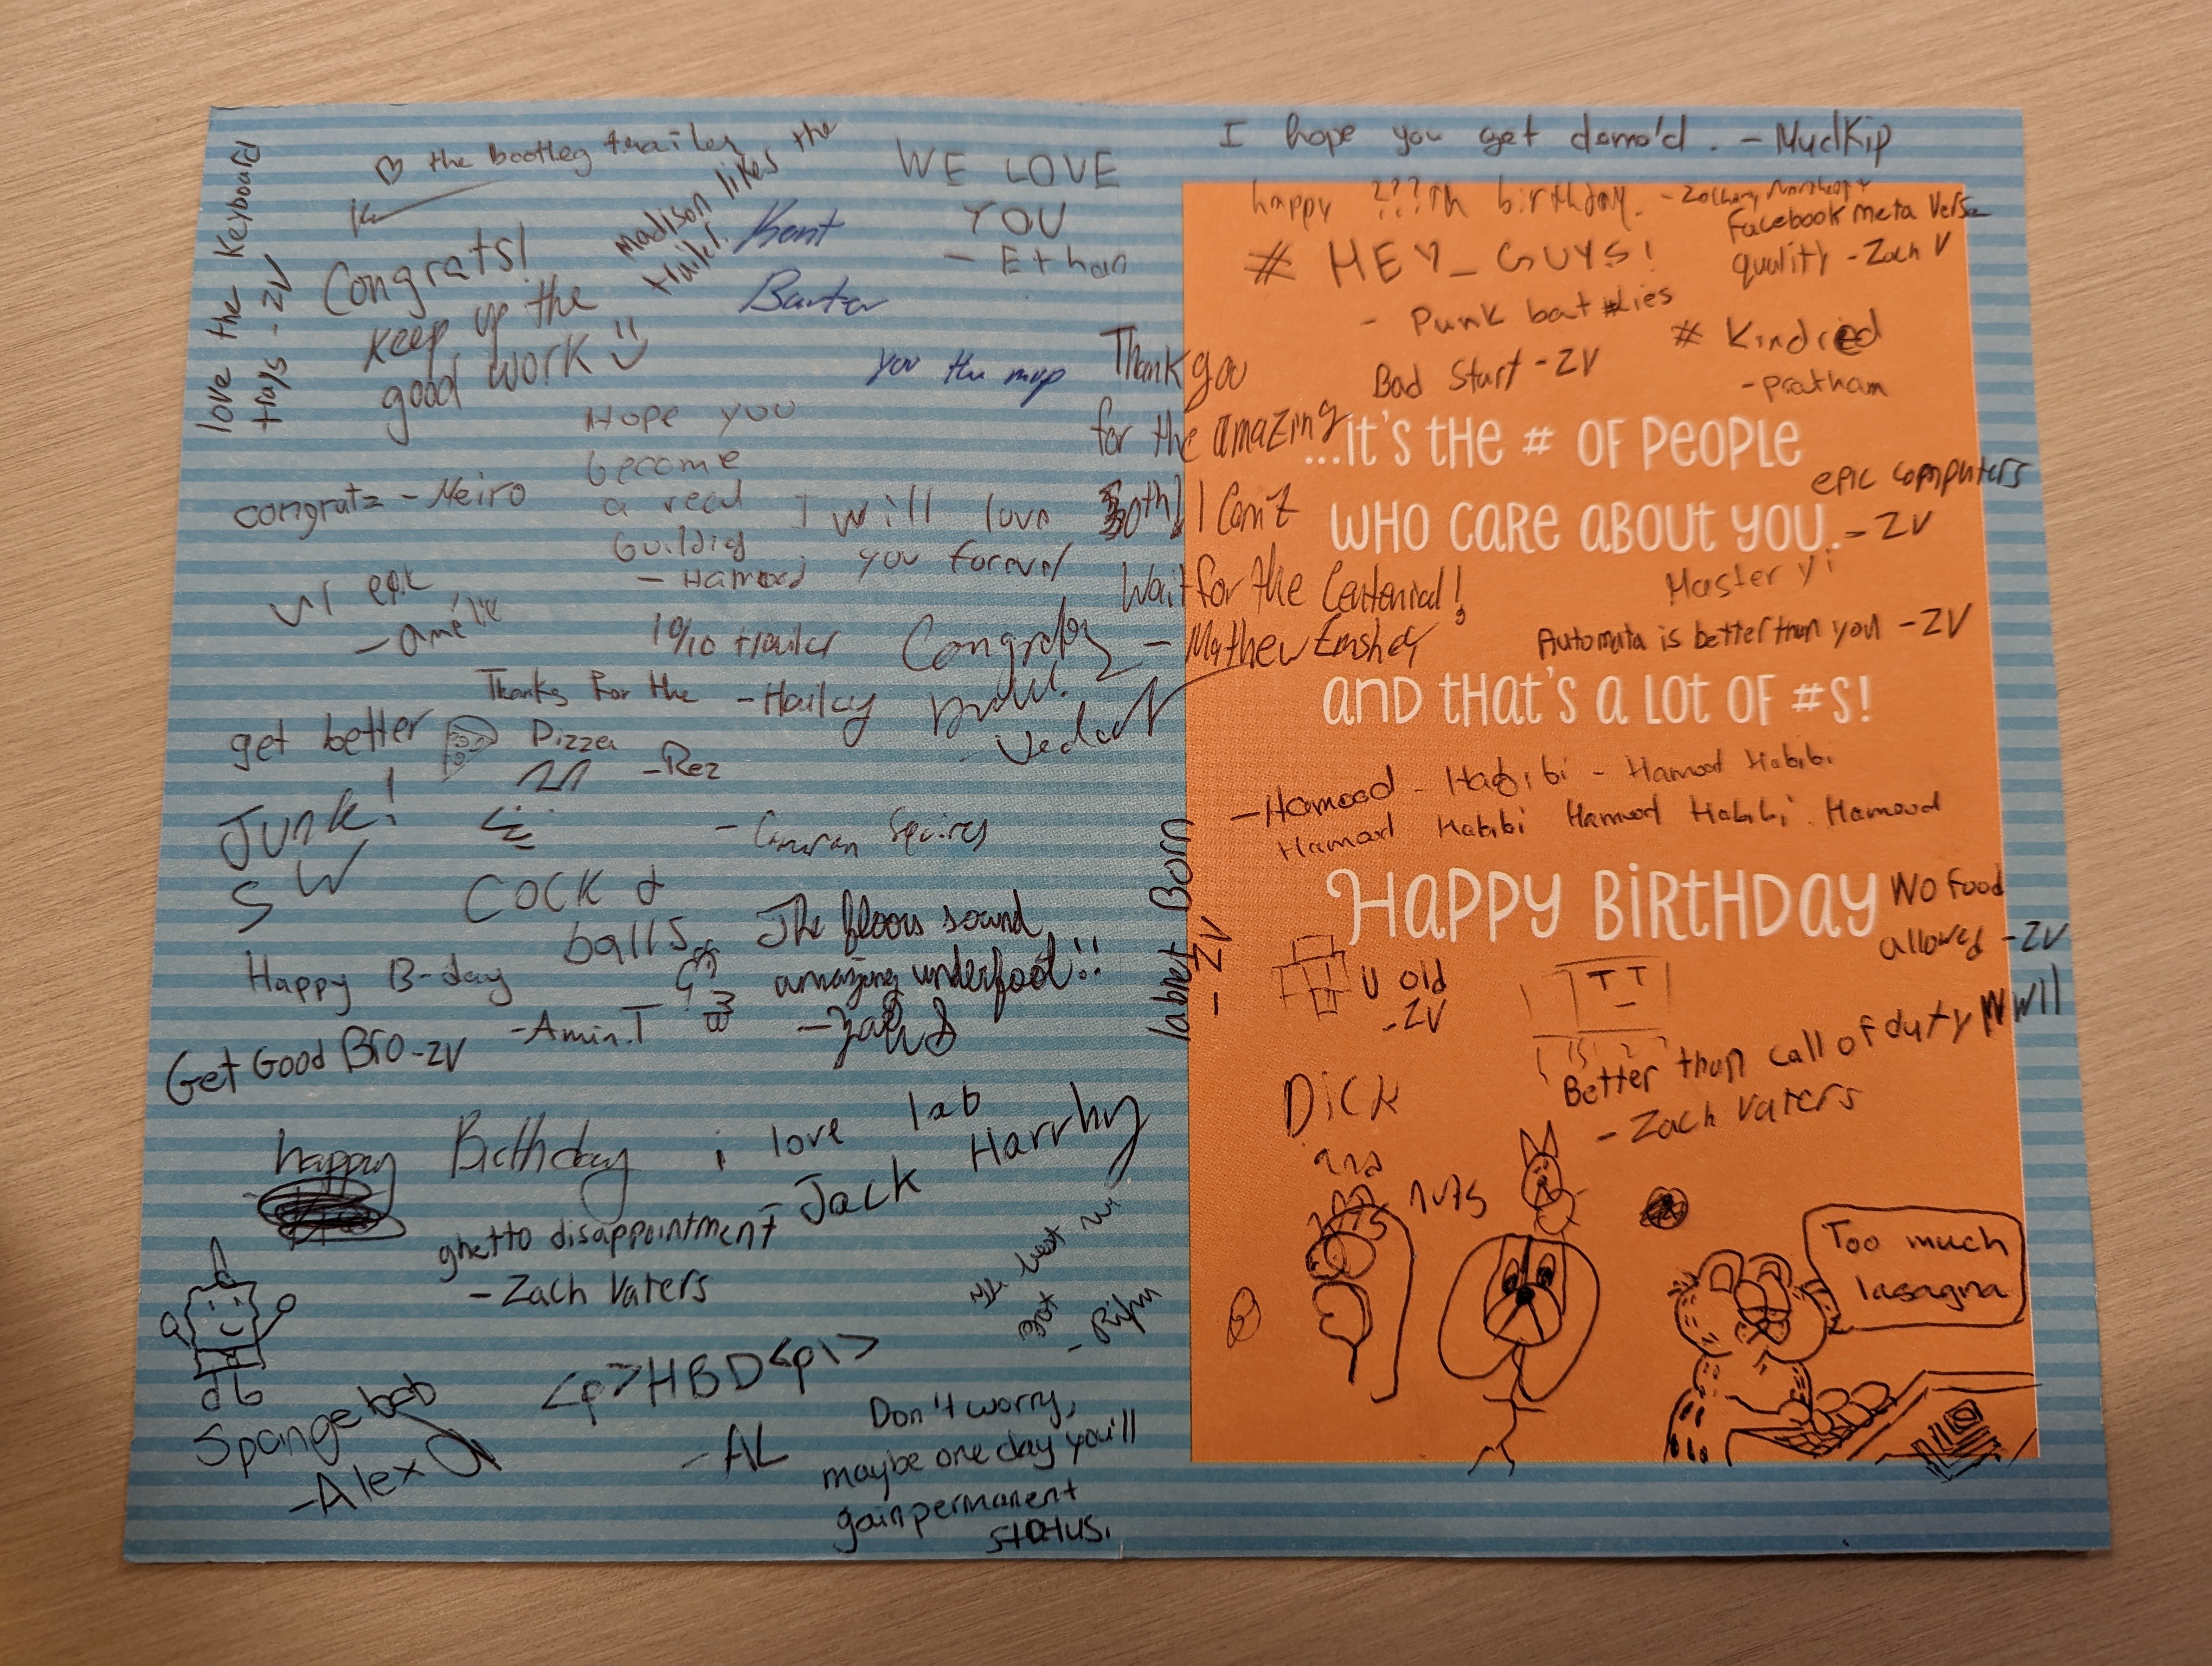 love the Keyboard
trays - ZV
♡ the Bootleg trailer
Congrats!
keep up the
good work :)
Madison likes the
trailer.
Kent
Barter
you the mvp
WE LOVE
YOU
- Ethan
congratz - Meiro
Hope you
become
a real
building
- Hamood
I will love
you forever
w/ epic
- amélie
10/10 trailer
- Hailey
Congratz
- Vedant
Thanks for the
Pizza
- Rez
get better
Junk!
SW
- Cameron Squires
COCK &
balls
Happy B-day
- Amin.T
The floors sound
amazing underfoot!!
Get Good Bro - ZV
happy Birthday
i love lab
- Jack Harrhy
ghetto disappointment
- Zach Vaters
Spongebob
- Alex
<p>HBD<p\>
- AL
Don't worry,
maybe one day you'll
gain permanent
status.
I hope you get demo'd. - MudKip
happy ???th birthday. - Zachary Northcott
Facebook meta verse
quality - Zach V
# HEY_GUYS!
- Punk bat lies
# Kindred
- pratham
Bad Start - ZV
Thank you
for the amazing
50th! I Can't
Wait for the Centennial!
- Mathew
...it's the # of people
who care about you.
epic computers
- ZV
Master Yi
Automata is better than you - ZV
and that's a lot of #s!
- Hamood - Habibi - Hamood Habibi
Hamood Habibi Hamood Habibi Hamood
Happy Birthday
labnet Born
- ZV
No food
allowed - ZV
U old
- ZV
Better than call of duty WWII
- Zach Vaters
Dick
and
nuts
Too much
lasagna